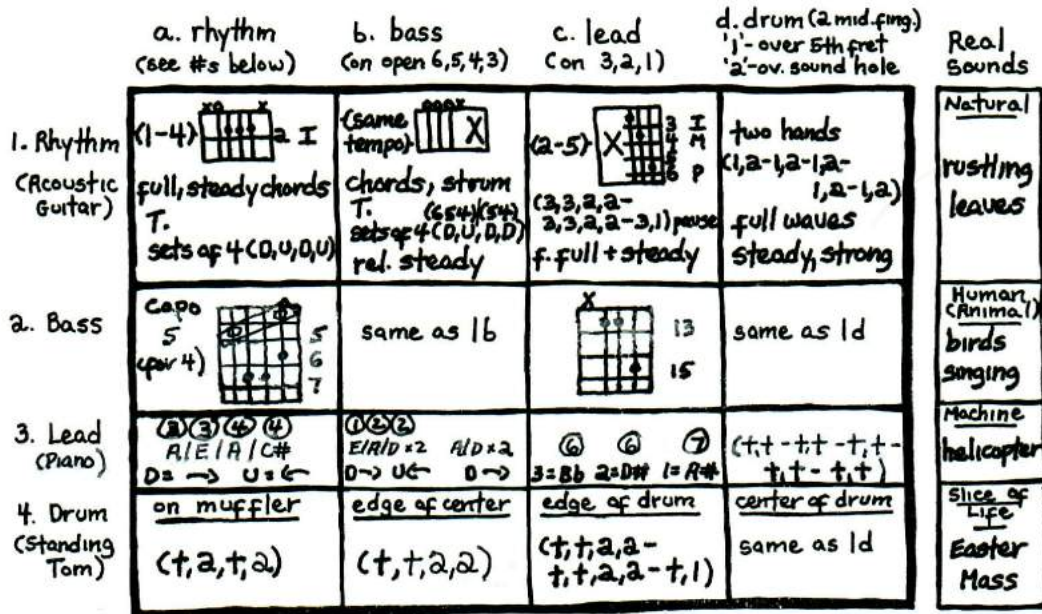 a. rhythm
(see #s below)
b. bass
(on open 6,5,4,3)
c. lead
(on 3,2,1)
d. drum (2 mid.fing.)
'1'- over 5th fret
'2'-ov. sound hole
Real
Sounds
1. Rhythm
(Acoustic
Guitar)
(1-4)
xo x
2 I
full, steady chords
T.
sets of 4 (D,U,D,U)
(same
tempo)
ooox
X
chords, strum
T. (654)(54)
sets of 4 (D,U,D,D)
rel. steady
(2-5)
X
3 I
4 M
5
6 P
(3,3,2,2-
3,3,2,2-3,1) pause
f. full + steady
two hands
(1,2-1,2-1,2-
1,2-1,2)
full waves
steady, strong
Natural
rustling
leaves
2. Bass
Capo
5
(por 4)
5
6
7
same as 1b
x
13
15
same as 1d
Human,
(Animal)
birds
singing
3. Lead
(Piano)
③ ④ ④
A/E/A/C#
D= → U= ←
① ② ②
E/A/D×2 A/D×2
D→ U← D→
⑥ ⑥ ⑦
3=Bb 2=D# 1=A#
(t,t-t,t-t,t-
t,t-t,t)
Machine
helicopter
4. Drum
(Standing
Tom)
on muffler
(t,2,t,2)
edge of center
(t,t,2,2)
edge of drum
(t,t,2,2-
t,t,2,2-t,1)
center of drum
same as 1d
Slice of
Life
Easter
Mass